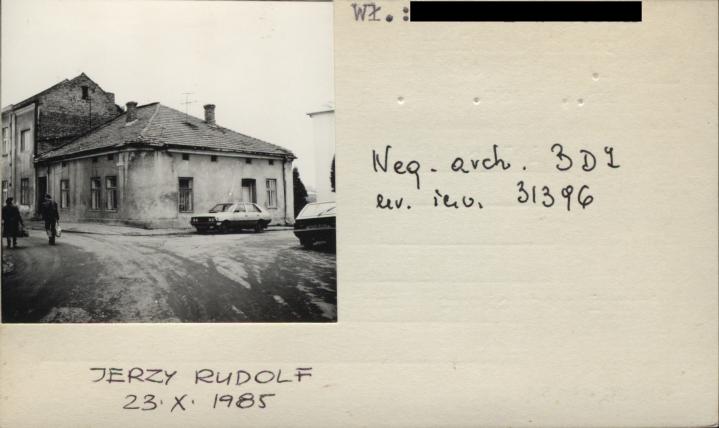 Wł.:
Neg. arch. BDZ
nr. inw. 31396
JERZY RUDOLF
23.X.1985